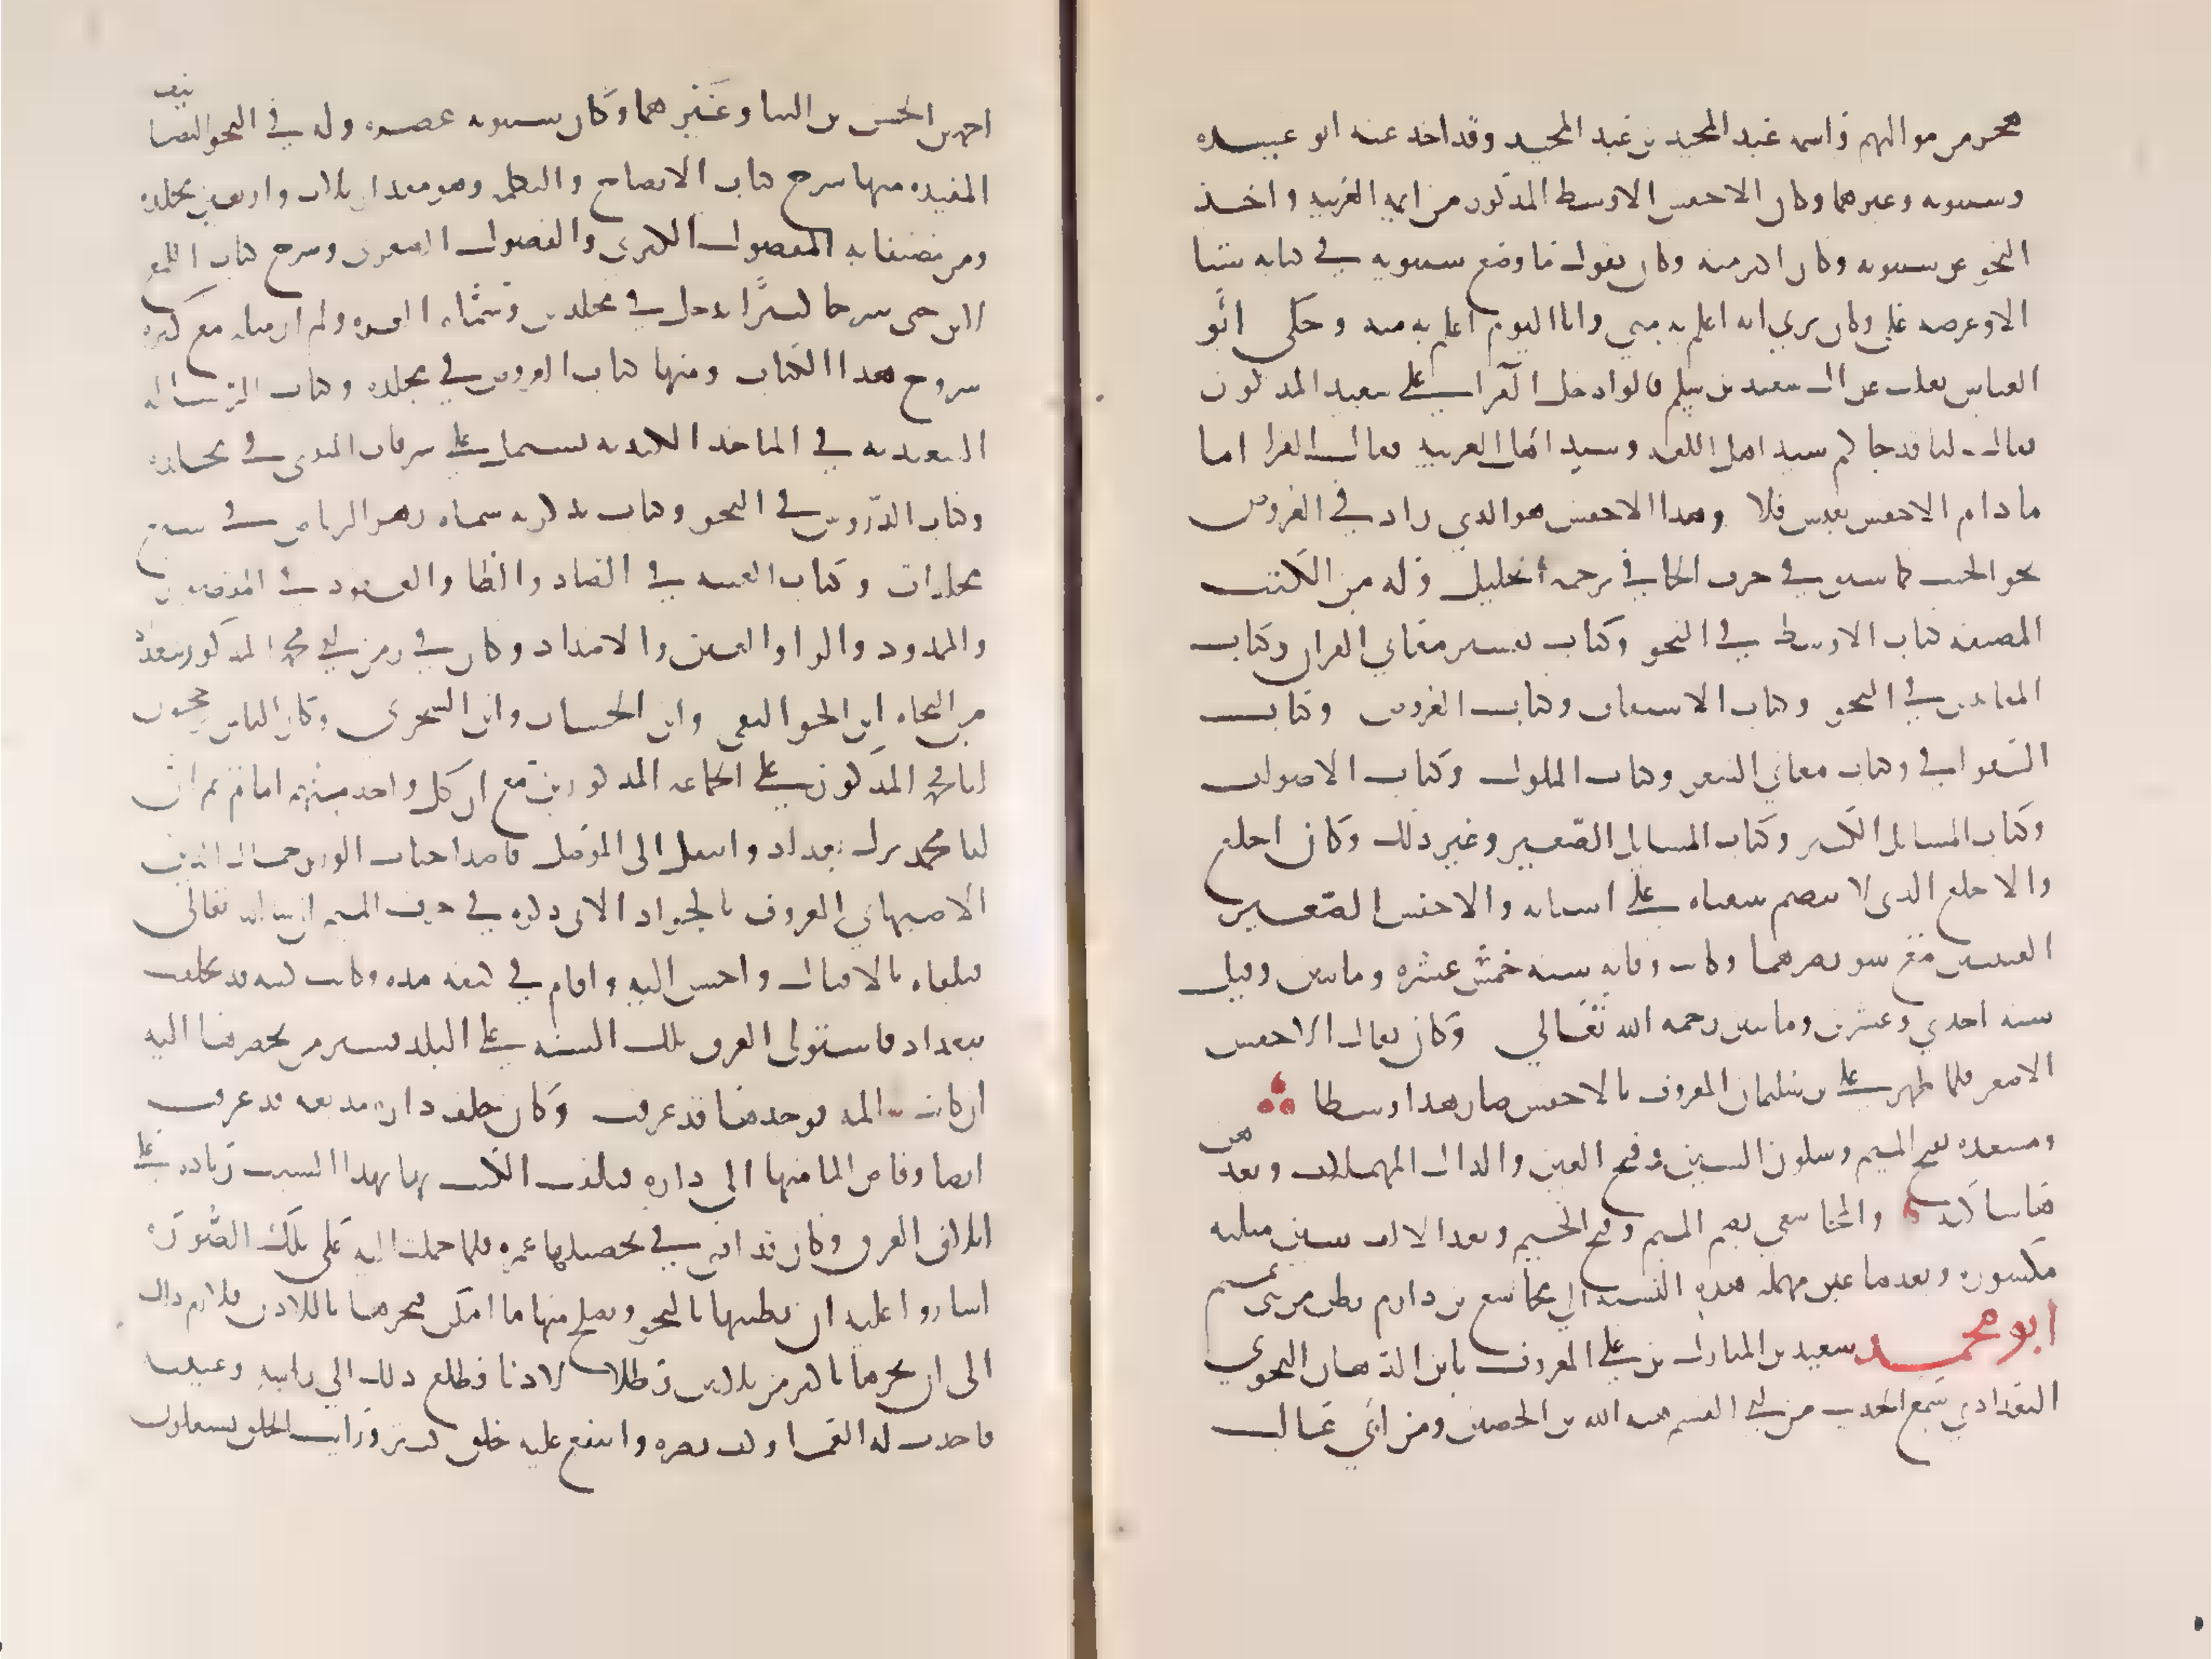 هجر من مواليهم واسمه عبد الحميد بن عبد المجيد وقد اخذ عنه ابو عبيده
وسيبويه وغيرهما وكان الاخفش الاوسط المذكور من ايمة العربيه واخذ
النحو عن سيبويه وكان اكبر منه وكان يقول ما وضع سيبويه في كتابه شيا
الا وعرضه علي وكان يري انه اعلم به مني وانا اليوم اعلم به منه وحكى ابو
العباس ثعلب عن ال سعيد بن سلم قالوا دخل الفرا على سعيد المذكور
فقال لنا قد جاكم سيد اهل اللغه وسيد اهل العربيه فقال الفرا اما
ما دام الاخفش يعيش فلا وهذا الاخفش هو الذي زاد في العروض
بحر الخبب كما سبق في حرف الخا في ترجمة الخليل وله من الكتب
المصنفه كتاب الاوسط في النحو وكتاب تفسير معاني القران وكتاب
المقاييس في النحو وكتاب الاشتقاق وكتاب العروض وكتاب
القوافي وكتاب معاني الشعر وكتاب الملوك وكتاب الاصوات
وكتاب المسايل الكبير وكتاب المسايل الصغير وغير ذلك وكان اجلع
والاجلع الذي لا تنضم شفتاه على اسنانه والاخفش الصغير
العينين مع سو بصرهما وكانت وفاته سنه خمس عشره وماتين وقيل
سنه احدي وعشرين وماتين رحمه الله تعالي وكان يقال له الاخفش
الاصغر فلما ظهر علي بن سليمان المعروف بالاخفش صار هذا وسطا
ومسعده بفتح الميم وسكون السين وفتح العين والدال المهملات وبعدهن
ها ساكنه والمجاشعي بضم الميم وفتح الجيم وبعد الالف شين مثلثه
مكسوره وبعدها عين مهمله هذه النسبه الي مجاشع بن دارم بطن من تميم
ابو محمد سعيد بن المبارك بن علي المعروف بابن الدهان النحوي
البغدادي سمع الحديث من ابي القسم هبه الله بن الحصين ومن ابي غالب
احمد بن الحسن بن البنا وغيرهما وكان سيبويه عصره وله في النحو التصانيف
المفيده منها شرح كتاب الايضاح والتكمله وهو مقدار ثلاث واربعين مجلده
ومن تصنيفاته الفصول الكبرى والفصول الصغرى وشرح كتاب اللمع
لابن جني شرحا كبيرا يدخل في مجلدين وسماه الغره ولم ار مثله مع كثره
شروح هذا الكتاب ومنها كتاب العروض في مجلده وكتاب الرساله
السعيديه في الماخذ الكنديه تشتمل على سرقات المتنبي في مجلده
وكتاب الدروس في النحو وكتاب تذكرته سماه زهر الرياض في سبع
مجلدات وكتاب الغنيه في الضاد والظا والعقود في المقصور
والممدود والرا والغين والاضداد وكان في زمن ابي محمد المذكور ببغداد
من النحاه ابن الجواليقي وابن الخشاب وابن الشجري وكان الناس يرجحون
ابا محمد المذكور على الجماعه المذكورين مع ان كل واحد منهم امام ثم ان
ابا محمد ترك بغداد وانتقل الى الموصل قاصدا جناب الوزير جمال الدين
الاصبهاني المعروف بالجواد الاتي ذكره في حرف الميم ان شا الله تعالى
فتلقاه بالاقبال واحسن اليه واقام في كنفه مده وكانت كتبه قد تخلفت
ببغداد فاستولى الغرق تلك السنه على البلد فسير من يحضرها اليه
ان كانت سالمه فوجدها قد غرقت وكان خلف داره مدبغه قد غرقت
ايضا وفاض الما منها الى داره فتلفت الكتب بها بهذا السبب زياده على
اتلاف الغرق وكان قد افنى في تحصيلها عمره فلما حملت اليه على تلك الصوره
اشاروا عليه ان يطيبها بالبخور ويصلح منها ما امكن فبخرها باللاذن فلازم ذلك
الى ان بخرها باكثر من ثلاثين رطلا لاذنا فطلع ذلك الي راسه وعينيه
فاحدث له العمى او كف بصره وانتفع عليه خلق كثير ورايت الخلق يشتغلون